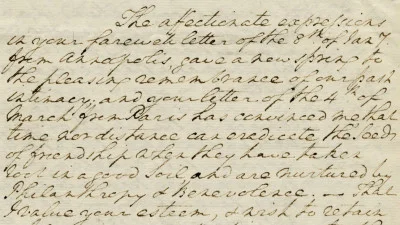 The affectionate expressions
in your farewell letter of the 8th of Jany
from Annapolis, gave a new spring to
the pleasing remembrance of our past
intimacy, and your letter of the 4th of
March from Paris has convinced me that
time nor distance can eredicate the seeds
of friendship when they have taken
root in a good soil and are nurtured by
Philanthropy & Benevolence. — That
I value your esteem, & wish to retain